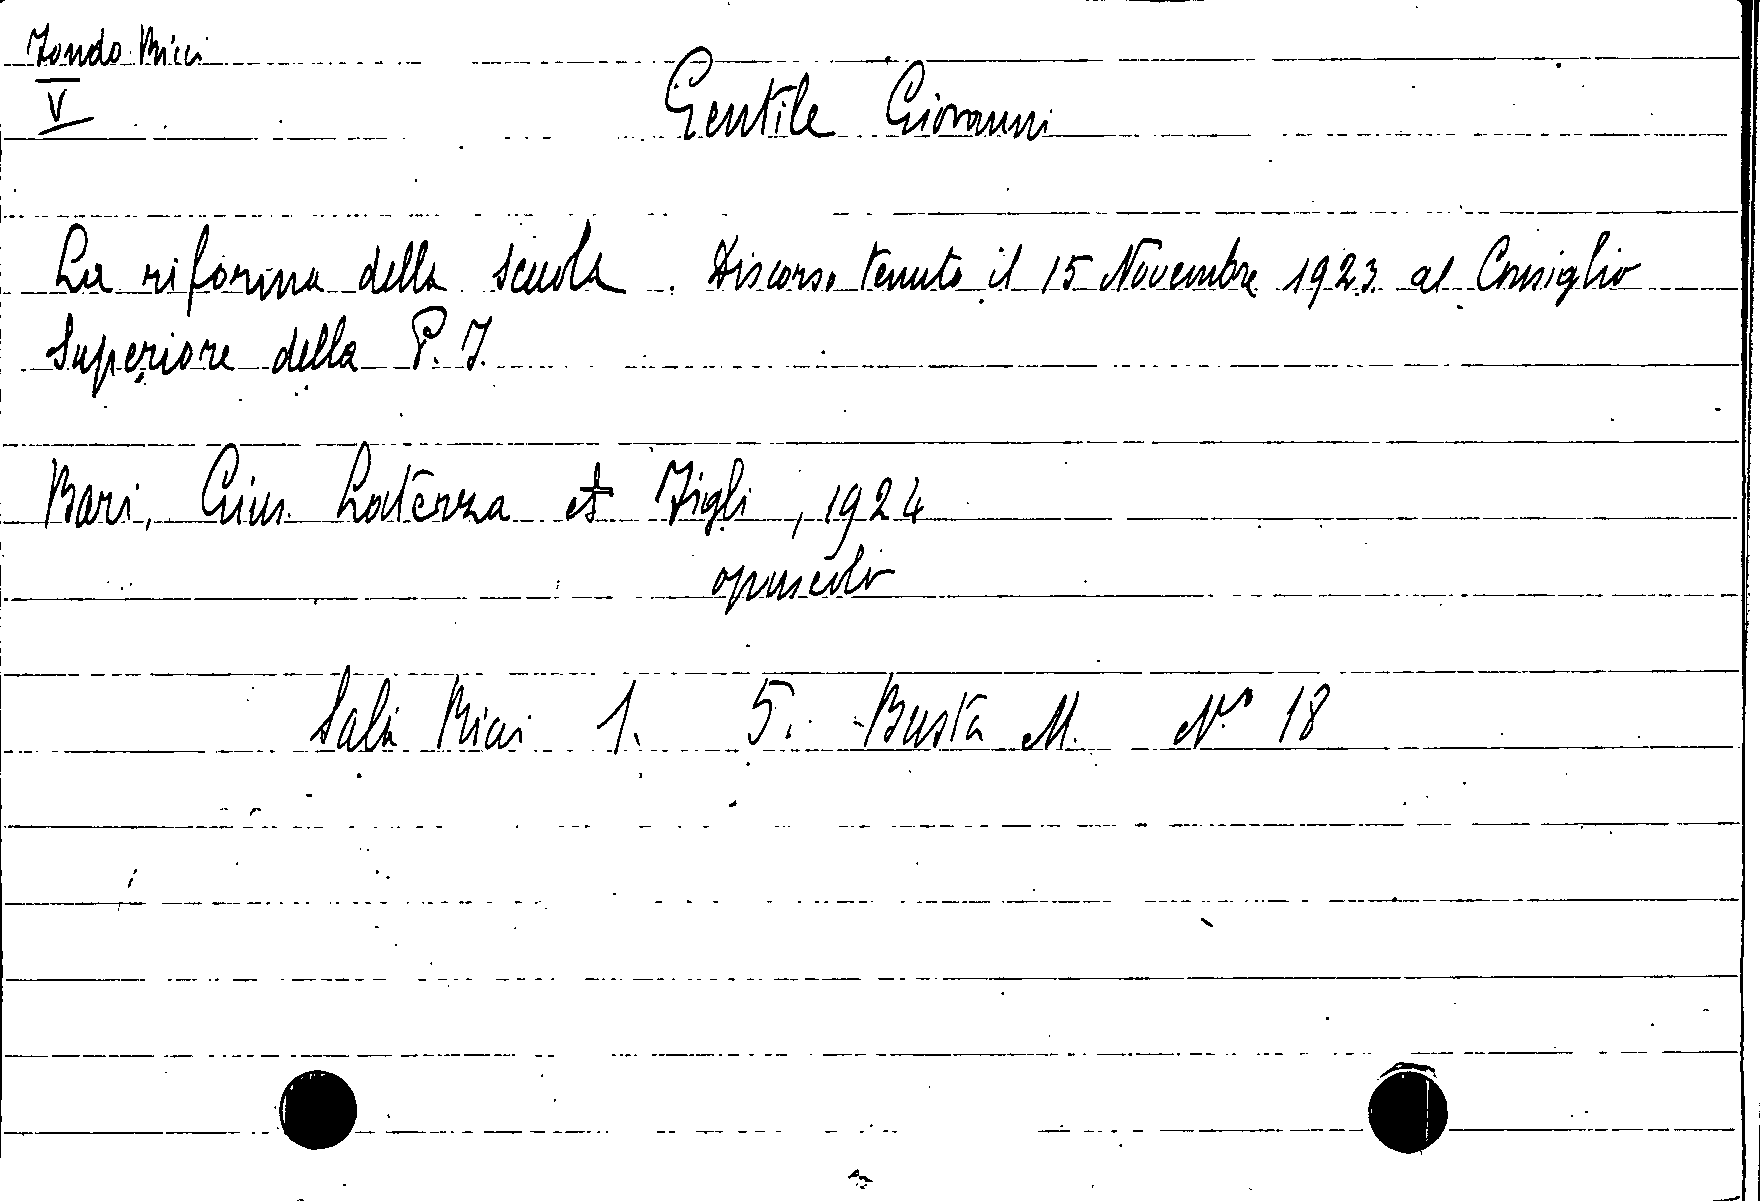 Fondo Ricci
V
Gentile Giovanni
La riforma della scuola. Discorso tenuto il 15 Novembre 1923 al Consiglio
Superiore della P. I.
Bari, Gius. Laterza et Figli, 1924
opuscolo
Sala Ricci 1. 5. Busta M. N.° 18